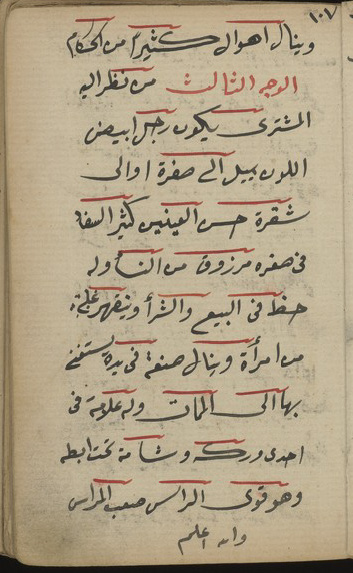 ١٠٧
وينال اهوال كثيرا من الحكام
الوجه الثالث من نظر اليه
المشترى يكون رجل ابيض
اللون يميل الى صفرة او الى
شقرة حسن العينين كثير السقا
فى صغره مرزوق من النسا وله
حظ فى البيع والشرأ ويقهر
من امرأة وينال صنعة فى يده يستغنى
بها الى الممات وله علامة فى
احدى وركه وشامة تحت ابطه
وهو قوى الراس صعب المراس
والله اعلم